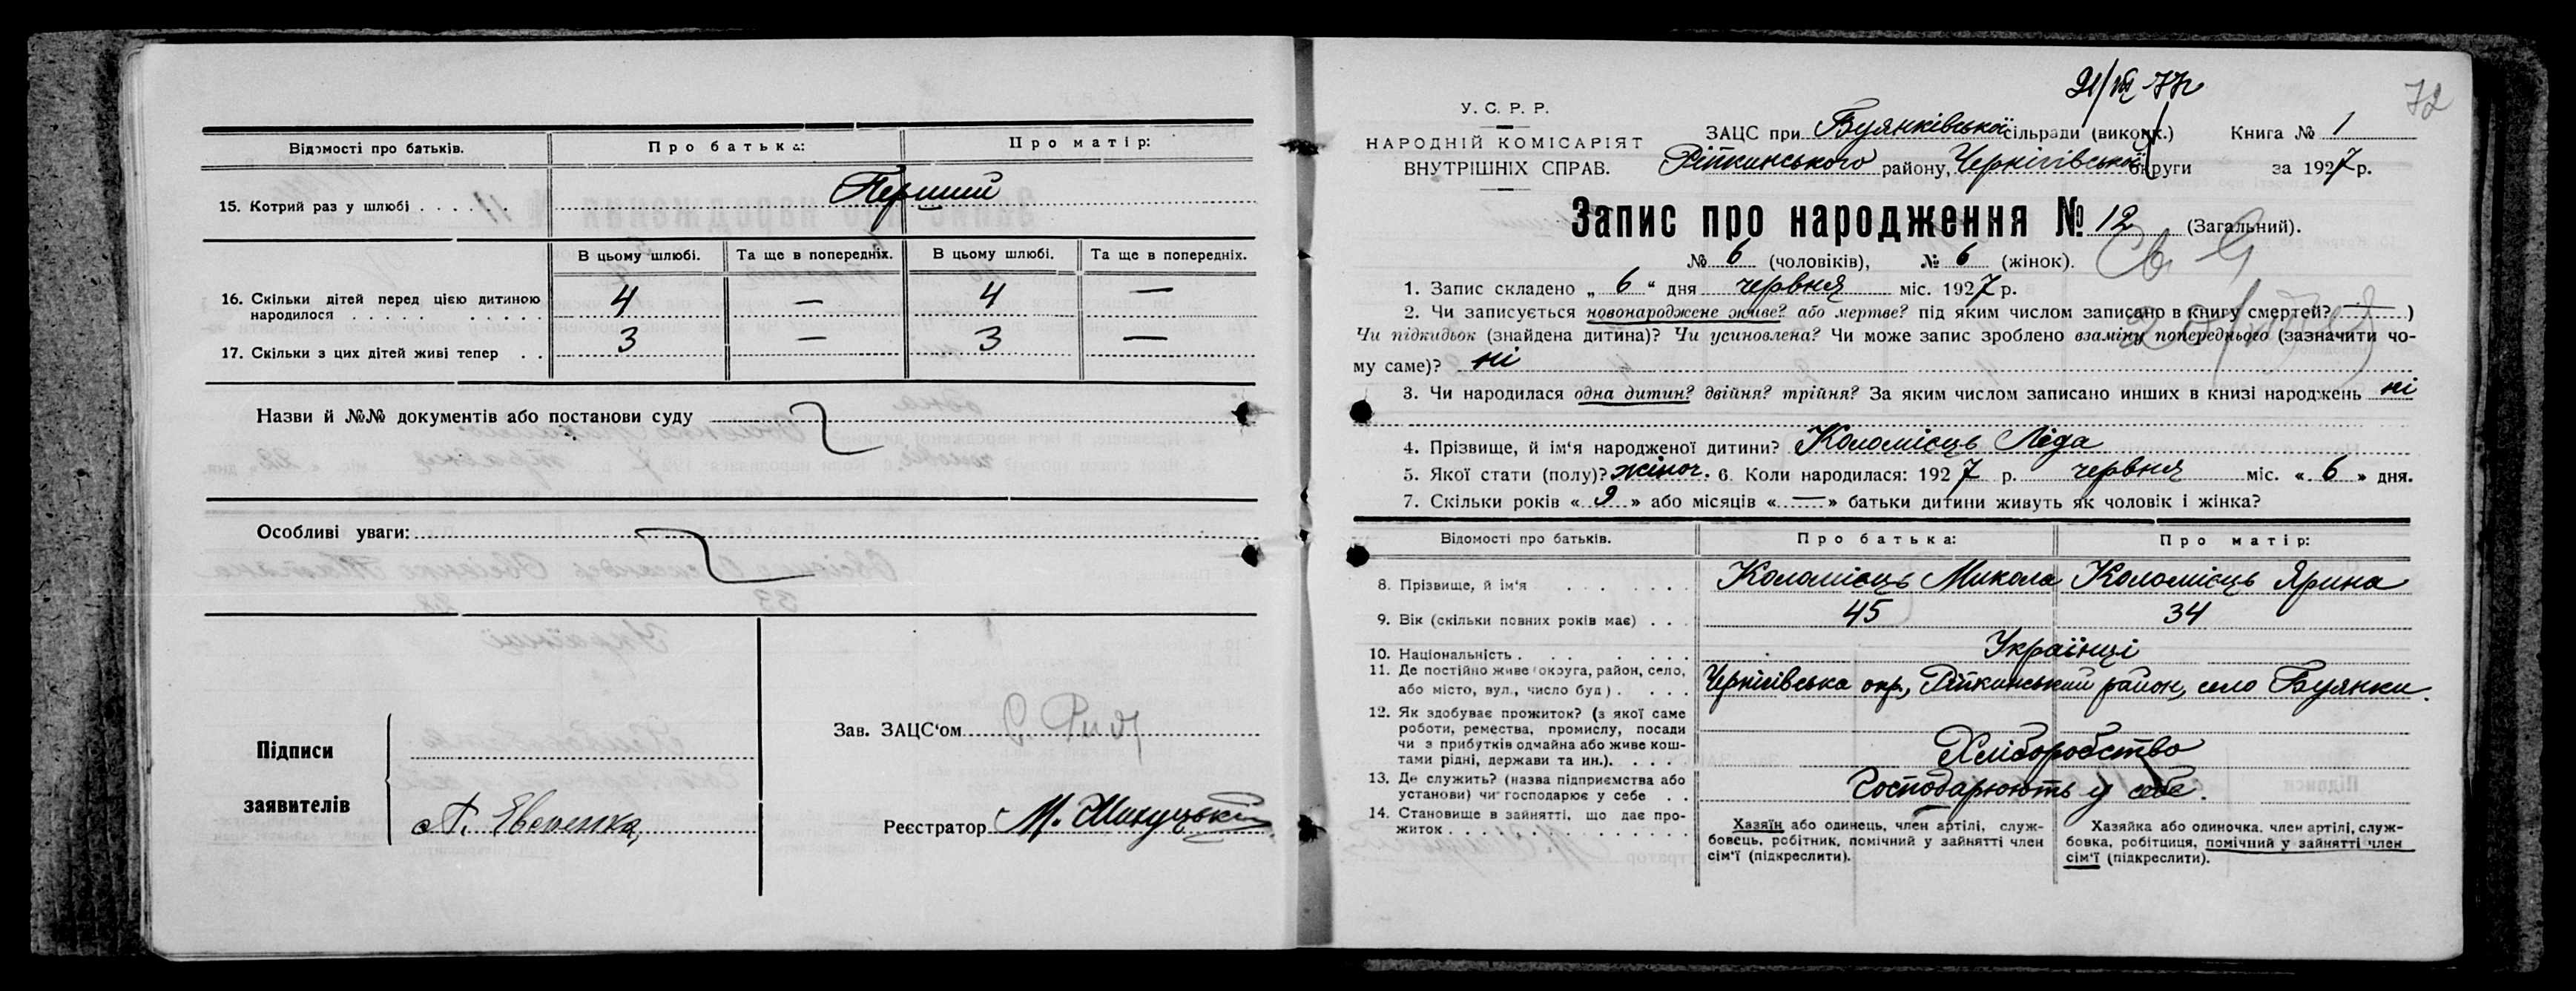 Відомості про батьків.
Про батька:
Про матір:
15. Котрий раз у шлюбі . . . . . .
Перший
В цьому шлюбі.
Та ще в попередніх.
В цьому шлюбі.
Та ще в попередніх.
16. Скільки дітей перед цією дитиною
народилося . . . . . . . . . .
4 — 4 —
17. Скільки з цих дітей живі тепер . .
3 — 3 —
Назви й №№ документів або постанови суду
Особливі уваги:
Підписи
заявителів
Зав. ЗАЦС'ом
Реєстратор
72
У. С. Р. Р.
НАРОДНІЙ КОМІСАРІЯТ
ВНУТРІШНІХ СПРАВ.
ЗАЦС при Буянківської сільради (виконк.) Книга № 1
Ріпкинського району, Чернігівської округи за 1927 р.
Запис про народження № 12 (Загальний).
№ 6 (чоловіків), № 6 (жінок).
1. Запис складено „ 6 “ дня червня міс. 1927 р.
2. Чи записується новонароджене живе? або мертве? під яким числом записано в книгу смертей? — )
Чи підкидьок (знайдена дитина)? Чи усиновлена? Чи може запис зроблено взаміну попереднього (зазначити чо-
му саме)? ні
3. Чи народилася одна дитин? двійня? трійня? За яким числом записано инших в книзі народжень ні
4. Прізвище, й ім'я народженої дитини? Коломієць Ліда
5. Якої стати (полу)? жіноч. 6. Коли народилася: 1927 р. червня міс. « 6 » дня.
7. Скільки років « 9 » або місяців « — » батьки дитини живуть як чоловік і жінка?
Відомості про батьків.
Про батька:
Про матір:
8. Прізвище, й ім'я . . . . . .
Коломієць Микола Коломієць Ярина
9. Вік (скільки повних років має) . . .
45 34
10. Національність . . . . . . .
Українці
11. Де постійно живе (округа, район, село,
або місто, вул., число буд.) . . . . .
Чернігівська окр., Ріпкинський район, село Буянки.
12. Як здобуває прожиток? (з якої саме
роботи, ремества, промислу, посади
чи з прибутків одмайна або живе кош-
тами рідні, держави та ин.). . . . .
Хліборобство
13. Де служить? (назва підприємства або
установи) чи господарює у себе . .
Господарюють у себе.
14. Становище в зайнятті, що дає про-
житок . . . . . . . . . . . . .
Хазяїн або одинець, член артілі, служ-
бовець, робітник, помічний у зайнятті член
сім'ї (підкреслити).
Хазяйка або одиночка, член артілі, служ-
бовка, робітниця, помічний у зайнятті член
сім'ї (підкреслити).